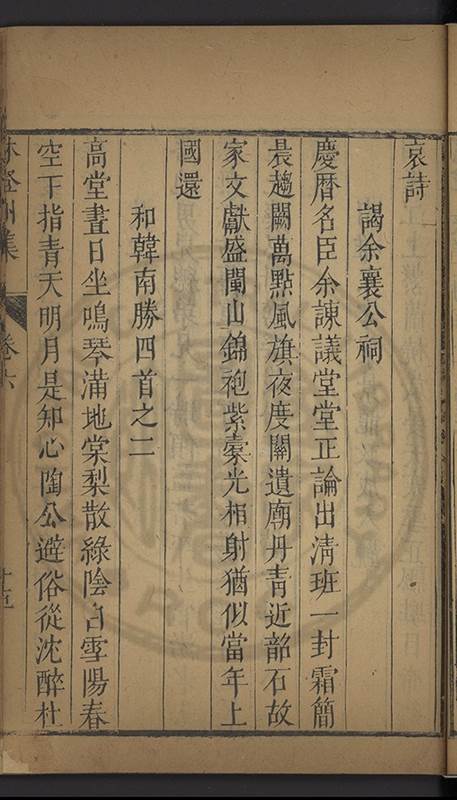 哀詩
謁余襄公祠
慶曆名臣余諫議堂堂正論出清班一封霜簡
晨趨闕萬點風旗夜度關遺廟丹青近韶石故
家文獻盛閩山錦袍紫橐光相射猶似當年上
國還
和韓南勝四首之二
高堂晝日坐鳴琴滿地棠梨散綠陰白雪陽春
空下指青天明月是知心陶公避俗從沈醉杜
林登州集
卷六